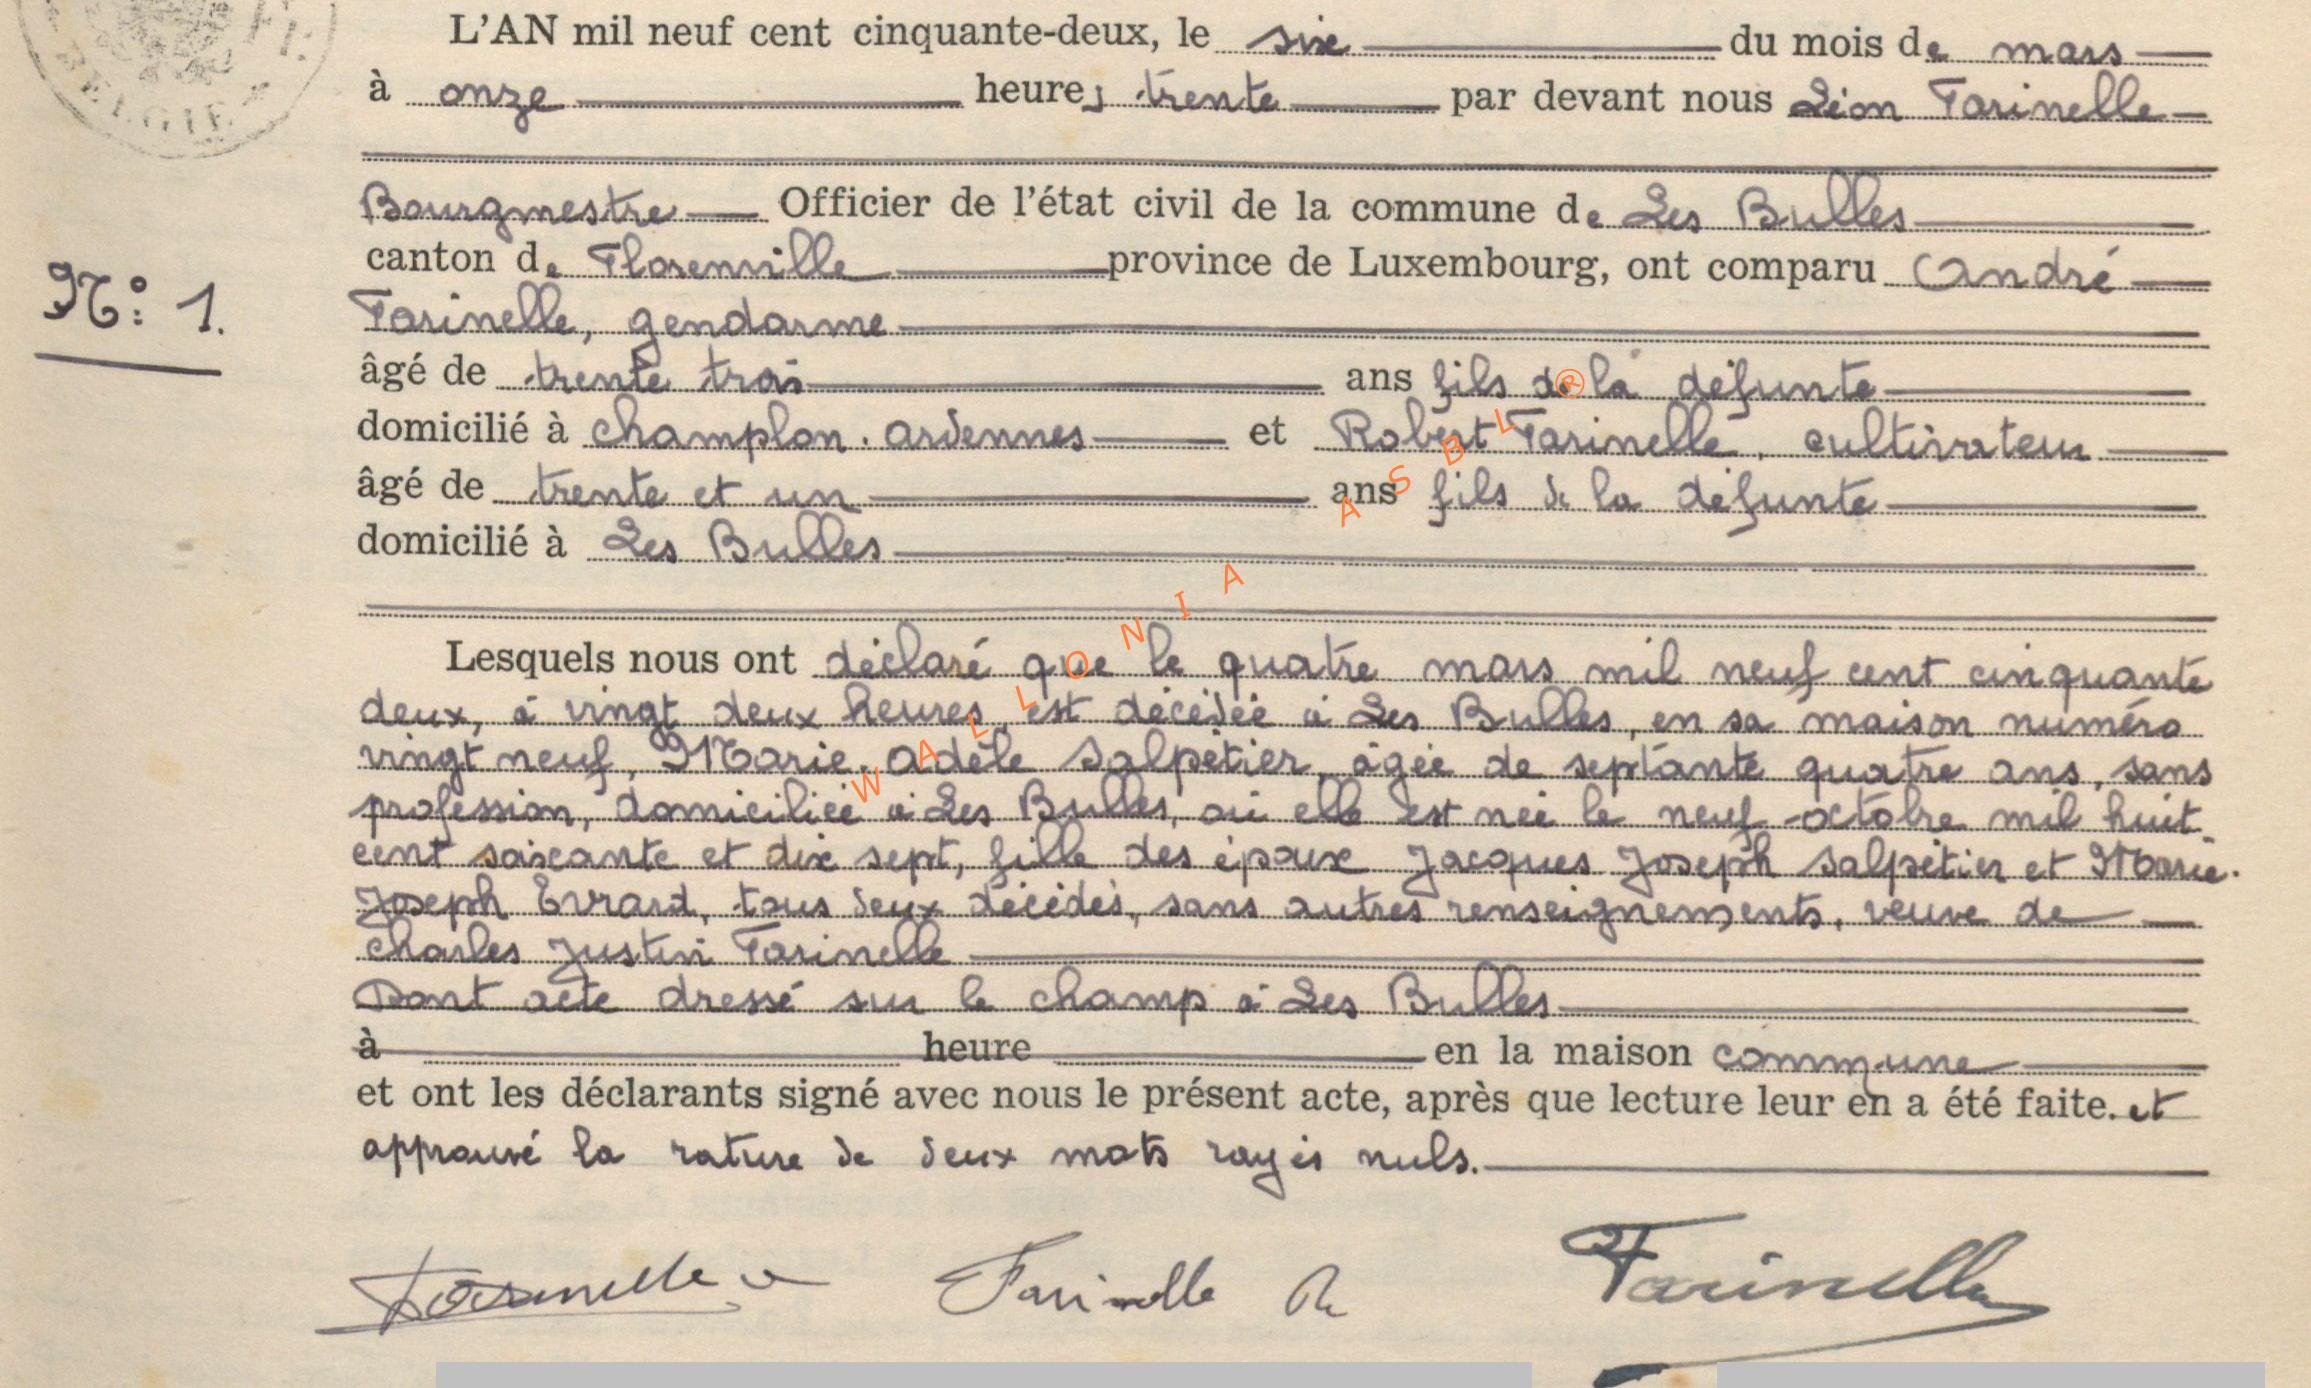 L'AN mil neuf cent cinquante-deux, le six du mois de mars
à onze heures trente par devant nous Léon Farinelle
Bourgmestre Officier de l'état civil de la commune de Les Bulles
canton de Florenville province de Luxembourg, ont comparu André
Farinelle, gendarme
âgé de trente trois ans fils de la défunte
domicilié à Champlon-Ardennes et Robert Farinelle, cultivateur
âgé de trente et un ans fils de la défunte
domicilié à Les Bulles
N°: 1.
Lesquels nous ont déclaré que le quatre mars mil neuf cent cinquante
deux, à vingt deux heures, est décédée à Les Bulles, en sa maison numéro
vingt neuf, Marie-Adèle Salpétier, âgée de septante quatre ans, sans
profession, domiciliée à Les Bulles, où elle est née le neuf octobre mil huit
cent soixante et dix sept, fille des époux Jacques Joseph Salpétier et Marie-
Joseph Evrard, tous deux décédés, sans autres renseignements, veuve de
Charles Justin Farinelle
Dont acte dressé sur le champ à Les Bulles
à heure en la maison commune
et ont les déclarants signé avec nous le présent acte, après que lecture leur en a été faite. et
approuvé la rature de deux mots rayés nuls.
Farinelle Farinelle R Farinelle
BELGIE
WALLONIA ASBL ®